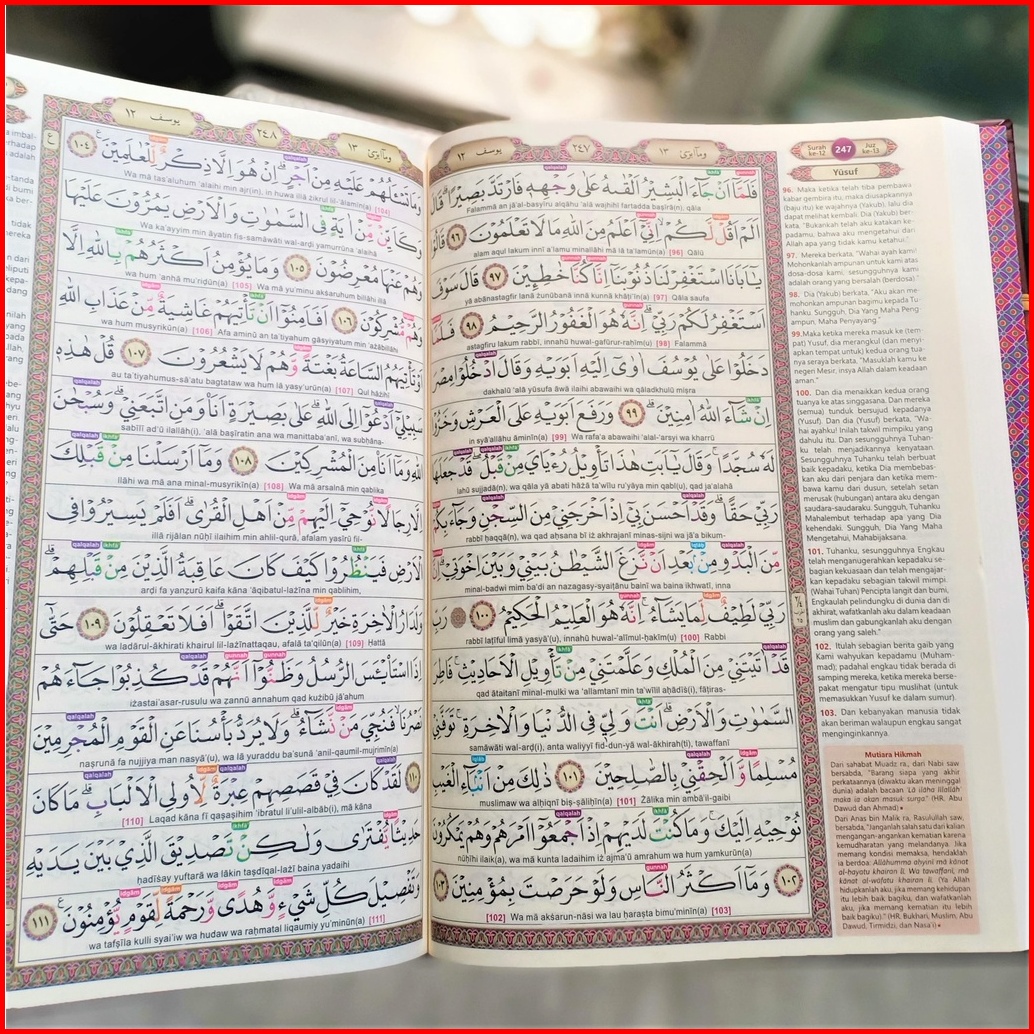 وما ابرئ ١٣
٢٤٧
يوسف ١٢
فَلَمَّآ اَنْ جَاۤءَ الْبَشِيْرُ اَلْقٰىهُ عَلٰى وَجْهِهٖ فَارْتَدَّ بَصِيْرًاۗ قَالَ
Falammā an jā'al-basyīru alqāhu 'alā wajhihī fartadda baṣīrā(n); qāla
اَلَمْ اَقُلْ لَّكُمْ اِنِّيْٓ اَعْلَمُ مِنَ اللّٰهِ مَا لَا تَعْلَمُوْنَ ٩٦ قَالُوْا
alam aqul lakum innī a'lamu minallāhi mā lā ta'lamūn(a) [96] Qālū
يٰٓاَبَانَا اسْتَغْفِرْ لَنَا ذُنُوْبَنَآ اِنَّا كُنَّا خٰطِـِٕيْنَ ٩٧ قَالَ سَوْفَ
yā abānastagfir lanā żunūbanā innā kunnā khāṭi'īn(a) [97] Qāla saufa
اَسْتَغْفِرُ لَكُمْ رَبِّيْ ۗاِنَّهٗ هُوَ الْغَفُوْرُ الرَّحِيْمُ ٩٨ فَلَمَّا
astagfiru lakum rabbī, innahū huwal-gafūrur-raḥīm(u) [98] Falammā
دَخَلُوْا عَلٰى يُوْسُفَ اٰوٰٓى اِلَيْهِ اَبَوَيْهِ وَقَالَ ادْخُلُوْا مِصْرَ
dakhalū 'alā yūsufa āwā ilaihi abawaihi wa qāladkhulū miṣra
اِنْ شَاۤءَ اللّٰهُ اٰمِنِيْنَ ۗ ٩٩ وَرَفَعَ اَبَوَيْهِ عَلَى الْعَرْشِ وَخَرُّوْا
in syā'allāhu āminīn(a) [99] Wa rafa'a abawaihi 'alal-'arsyi wa kharrū
لَهٗ سُجَّدًاۚ وَقَالَ يٰٓاَبَتِ هٰذَا تَأْوِيْلُ رُءْيَايَ مِنْ قَبْلُ ۖقَدْ جَعَلَهَا
lahū sujjadā(n), wa qāla yā abati hāżā ta'wīlu ru'yāya min qabl(u), qad ja'alahā
رَبِّيْ حَقًّاۗ وَقَدْ اَحْسَنَ بِيْٓ اِذْ اَخْرَجَنِيْ مِنَ السِّجْنِ وَجَاۤءَ بِكُمْ
rabbī ḥaqqā(n), wa qad aḥsana bī iż akhrajanī minas-sijni wa jā'a bikum-
مِّنَ الْبَدْوِ مِنْۢ بَعْدِ اَنْ نَّزَغَ الشَّيْطٰنُ بَيْنِيْ وَبَيْنَ اِخْوَتِيْۗ اِنَّ
minal-badwi mim ba'di an nazagasy-syaiṭānu bainī wa baina ikhwatī, inna
رَبِّيْ لَطِيْفٌ لِّمَا يَشَاۤءُ ۗاِنَّهٗ هُوَ الْعَلِيْمُ الْحَكِيْمُ ١٠٠ رَبِّ
rabbī laṭīful limā yasyā'(u), innahū huwal-'alīmul-ḥakīm(u) [100] Rabbi
قَدْ اٰتَيْتَنِيْ مِنَ الْمُلْكِ وَعَلَّمْتَنِيْ مِنْ تَأْوِيْلِ الْاَحَادِيْثِۚ فَاطِرَ
qad ātaitanī minal-mulki wa 'allamtanī min ta'wīlil aḥādīṡ(i), fāṭiras-
السَّمٰوٰتِ وَالْاَرْضِۗ اَنْتَ وَلِيّٖ فِى الدُّنْيَا وَالْاٰخِرَةِۚ تَوَفَّنِيْ
samāwāti wal-arḍ(i), anta waliyyī fid-dun-yā wal-ākhirah(ti), tawaffanī
مُسْلِمًا وَّاَلْحِقْنِيْ بِالصّٰلِحِيْنَ ١٠١ ذٰلِكَ مِنْ اَنْۢبَاۤءِ الْغَيْبِ
muslimaw wa alḥiqnī biṣ-ṣāliḥīn(a) [101] Żālika min ambā'il-gaibi
نُوْحِيْهِ اِلَيْكَۚ وَمَا كُنْتَ لَدَيْهِمْ اِذْ اَجْمَعُوْٓا اَمْرَهُمْ وَهُمْ يَمْكُرُوْنَ
nūḥīhi ilaik(a), wa mā kunta ladaihim iż ajma'ū amrahum wa hum yamkurūn(a)
١٠٢ وَمَآ اَكْثَرُ النَّاسِ وَلَوْ حَرَصْتَ بِمُؤْمِنِيْنَ ١٠٣
[102] Wa mā akṡarun-nāsi wa lau ḥaraṣta bimu'minīn(a) [103]
Surah ke-12
247
Juz ke-13
Yūsuf
96. Maka ketika telah tiba pembawa
kabar gembira itu, maka diusapkannya
(baju itu) ke wajahnya (Yakub), lalu dia
dapat melihat kembali. Dia (Yakub) ber-
kata, "Bukankah telah aku katakan ke-
padamu, bahwa aku mengetahui dari
Allah apa yang tidak kamu ketahui."
97. Mereka berkata, "Wahai ayah kami!
Mohonkanlah ampunan untuk kami atas
dosa-dosa kami, sesungguhnya kami
adalah orang yang bersalah (berdosa)."
98. Dia (Yakub) berkata, "Aku akan me-
mohonkan ampunan bagimu kepada Tu-
hanku. Sungguh, Dia Yang Maha Peng-
ampun, Maha Penyayang."
99. Maka ketika mereka masuk ke (tem-
pat) Yusuf, dia merangkul (dan menyi-
apkan tempat untuk) kedua orang tua-
nya seraya berkata, "Masuklah kamu ke
negeri Mesir, insya Allah dalam keadaan
aman."
100. Dan dia menaikkan kedua orang
tuanya ke atas singgasana. Dan mereka
(semua) tunduk bersujud kepadanya
(Yusuf). Dan dia (Yusuf) berkata, "Wa-
hai ayahku! Inilah takwil mimpiku yang
dahulu itu. Dan sesungguhnya Tuhan-
ku telah menjadikannya kenyataan.
Sesungguhnya Tuhanku telah berbuat
baik kepadaku, ketika Dia membebas-
kan aku dari penjara dan ketika mem-
bawa kamu dari dusun, setelah setan
merusak (hubungan) antara aku dengan
saudara-saudaraku. Sungguh, Tuhanku
Mahalembut terhadap apa yang Dia
kehendaki. Sungguh, Dia Yang Maha
Mengetahui, Mahabijaksana.
101. Tuhanku, sesungguhnya Engkau
telah menganugerahkan kepadaku se-
bagian kekuasaan dan telah mengajar-
kan kepadaku sebagian takwil mimpi.
(Wahai Tuhan) Pencipta langit dan bumi,
Engkaulah pelindungku di dunia dan di
akhirat, wafatkanlah aku dalam keadaan
muslim dan gabungkanlah aku dengan
orang yang saleh."
102. Itulah sebagian berita gaib yang
Kami wahyukan kepadamu (Muham-
mad); padahal engkau tidak berada di
samping mereka, ketika mereka berse-
pakat mengatur tipu muslihat (untuk
memasukkan Yusuf ke dalam sumur).
103. Dan kebanyakan manusia tidak
akan beriman walaupun engkau sangat
menginginkannya.
Mutiara Hikmah
Dari sahabat Muadz ra., dari Nabi saw
bersabda, "Barang siapa yang akhir
perkataannya (diwaktu akan meninggal
dunia) adalah bacaan: 'Lā ilāha illallāh'
maka ia akan masuk surga." (HR. Abu
Dawud dan Ahmad)
Dari Anas bin Malik ra, Rasulullah saw,
bersabda, "Janganlah salah satu dari kalian
mengangan-angankan kematian karena
kemudharatan yang melandanya. Jika
memang kondisi memaksa, hendaklah
ia berdoa: Allāhumma ahyinī mā kānat
al-hayatu khairan lī. Wa tawaffanī, mā
kānat al-wafatu khairan lī. (Ya Allah
hidupkanlah aku, jika memang kehidupan
itu lebih baik bagiku, dan wafatkanlah
aku, jika memang kematian itu lebih
baik bagiku)." (HR. Bukhari, Muslim, Abu
Dawud, Tirmidzi, dan Nasa'i)
وما ابرئ ١٣
٢٤٨
يوسف ١٢
وَمَا تَسْـَٔلُهُمْ عَلَيْهِ مِنْ اَجْرٍۗ اِنْ هُوَ اِلَّا ذِكْرٌ لِّلْعٰلَمِيْنَ ١٠٤
Wa mā tas'aluhum 'alaihi min ajr(in), in huwa illā żikrul lil-'ālamīn(a) [104]
وَكَاَيِّنْ مِّنْ اٰيَةٍ فِى السَّمٰوٰتِ وَالْاَرْضِ يَمُرُّوْنَ عَلَيْهَا
Wa ka'ayyim min āyatin fis-samāwāti wal-arḍi yamurrūna 'alaihā
وَهُمْ عَنْهَا مُعْرِضُوْنَ ١٠٥ وَمَا يُؤْمِنُ اَكْثَرُهُمْ بِاللّٰهِ اِلَّا
wa hum 'anhā mu'riḍūn(a) [105] Wa mā yu'minu akṡaruhum billāhi illā
وَهُمْ مُّشْرِكُوْنَ ١٠٦ اَفَاَمِنُوْٓا اَنْ تَأْتِيَهُمْ غَاشِيَةٌ مِّنْ عَذَابِ اللّٰهِ
wa hum musyrikūn(a) [106] Afa aminū an ta'tiyahum gāsyiyatum min 'ażābillāhi
اَوْ تَأْتِيَهُمُ السَّاعَةُ بَغْتَةً وَّهُمْ لَا يَشْعُرُوْنَ ١٠٧ قُلْ هٰذِهٖ
au ta'tiyahumus-sā'atu bagtataw wa hum lā yasy'urūn(a) [107] Qul hāżihī
سَبِيْلِيْٓ اَدْعُوْٓا اِلَى اللّٰهِ ۗعَلٰى بَصِيْرَةٍ اَنَا۠ وَمَنِ اتَّبَعَنِيْ ۗوَسُبْحٰنَ
sabīlī ad'ū ilallāh(i), 'alā baṣīratin ana wa manittaba'anī, wa subḥāna-
اللّٰهِ وَمَآ اَنَا۠ مِنَ الْمُشْرِكِيْنَ ١٠٨ وَمَآ اَرْسَلْنَا مِنْ قَبْلِكَ
llāhi wa mā ana minal-musyrikīn(a) [108] Wa mā arsalnā min qablika
اِلَّا رِجَالًا نُّوْحِيْٓ اِلَيْهِمْ مِّنْ اَهْلِ الْقُرٰىۗ اَفَلَمْ يَسِيْرُوْا فِى
illā rijālan nūḥī ilaihim min ahlil-qurā, afalam yasīrū fil-
الْاَرْضِ فَيَنْظُرُوْا كَيْفَ كَانَ عَاقِبَةُ الَّذِيْنَ مِنْ قَبْلِهِمْۗ
arḍi fa yanẓurū kaifa kāna 'āqibatul-lażīna min qablihim,
وَلَدَارُ الْاٰخِرَةِ خَيْرٌ لِّلَّذِيْنَ اتَّقَوْاۗ اَفَلَا تَعْقِلُوْنَ ١٠٩ حَتّٰٓى
wa ladārul-ākhirati khairul lil-lażīnattaqau, afalā ta'qilūn(a) [109] Ḥattā
اِذَا اسْتَا۟يْـَٔسَ الرُّسُلُ وَظَنُّوْٓا اَنَّهُمْ قَدْ كُذِبُوْا جَاۤءَهُمْ
iżastai'asar-rusulu wa ẓannū annahum qad kużibū jā'ahum
نَصْرُنَاۙ فَنُجِّيَ مَنْ نَّشَاۤءُ ۗوَلَا يُرَدُّ بَأْسُنَا عَنِ الْقَوْمِ الْمُجْرِمِيْنَ
naṣrunā fa nujjiya man nasyā'(u), wa lā yuraddu ba'sunā 'anil-qaumil-mujrimīn(a)
١١٠ لَقَدْ كَانَ فِيْ قَصَصِهِمْ عِبْرَةٌ لِّاُولِى الْاَلْبَابِۗ مَا كَانَ
[110] Laqad kāna fī qaṣaṣihim 'ibratul li'ulil-albāb(i), mā kāna
حَدِيْثًا يُّفْتَرٰى وَلٰكِنْ تَصْدِيْقَ الَّذِيْ بَيْنَ يَدَيْهِ
ḥadīṡay yuftarā wa lākin taṣdīqal-lażī baina yadaihi
وَتَفْصِيْلَ كُلِّ شَيْءٍ وَّهُدًى وَّرَحْمَةً لِّقَوْمٍ يُّؤْمِنُوْنَ ١١١
wa tafṣīla kulli syai'iw wa hudaw wa raḥmatal liqaumiy yu'minūn(a) [111]